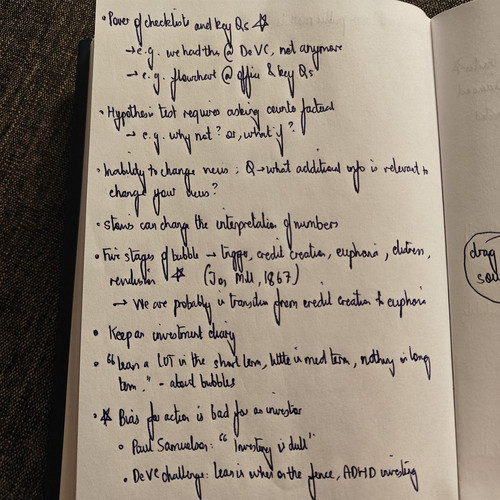 • Power of checklist and key Qs ☆
→ e.g. we had this @ DeVC, not anymore
→ e.g. flowchart @ office & key Qs
• Hypothesis test requires asking counter factual
→ e.g. why not? or, what if?
• Inability to change views; Q → what additional info is relevant to
change your views?
• stories can change the interpretation of numbers
• Five stages of bubble → trigger, credit creation, euphoria, distress,
revulsion ☆ (Jon Mill, 1867)
→ We are probably in transition from credit creation to euphoria
• Keep an investment diary
• "learn a LOT in the short term, little in med term, nothing in long
term." - about bubbles
• ☆ Bias for action is bad for an investor
• Paul Samuelson: "Investing is dull"
• DeVC challenge: on the fence, ADHD investing
drag